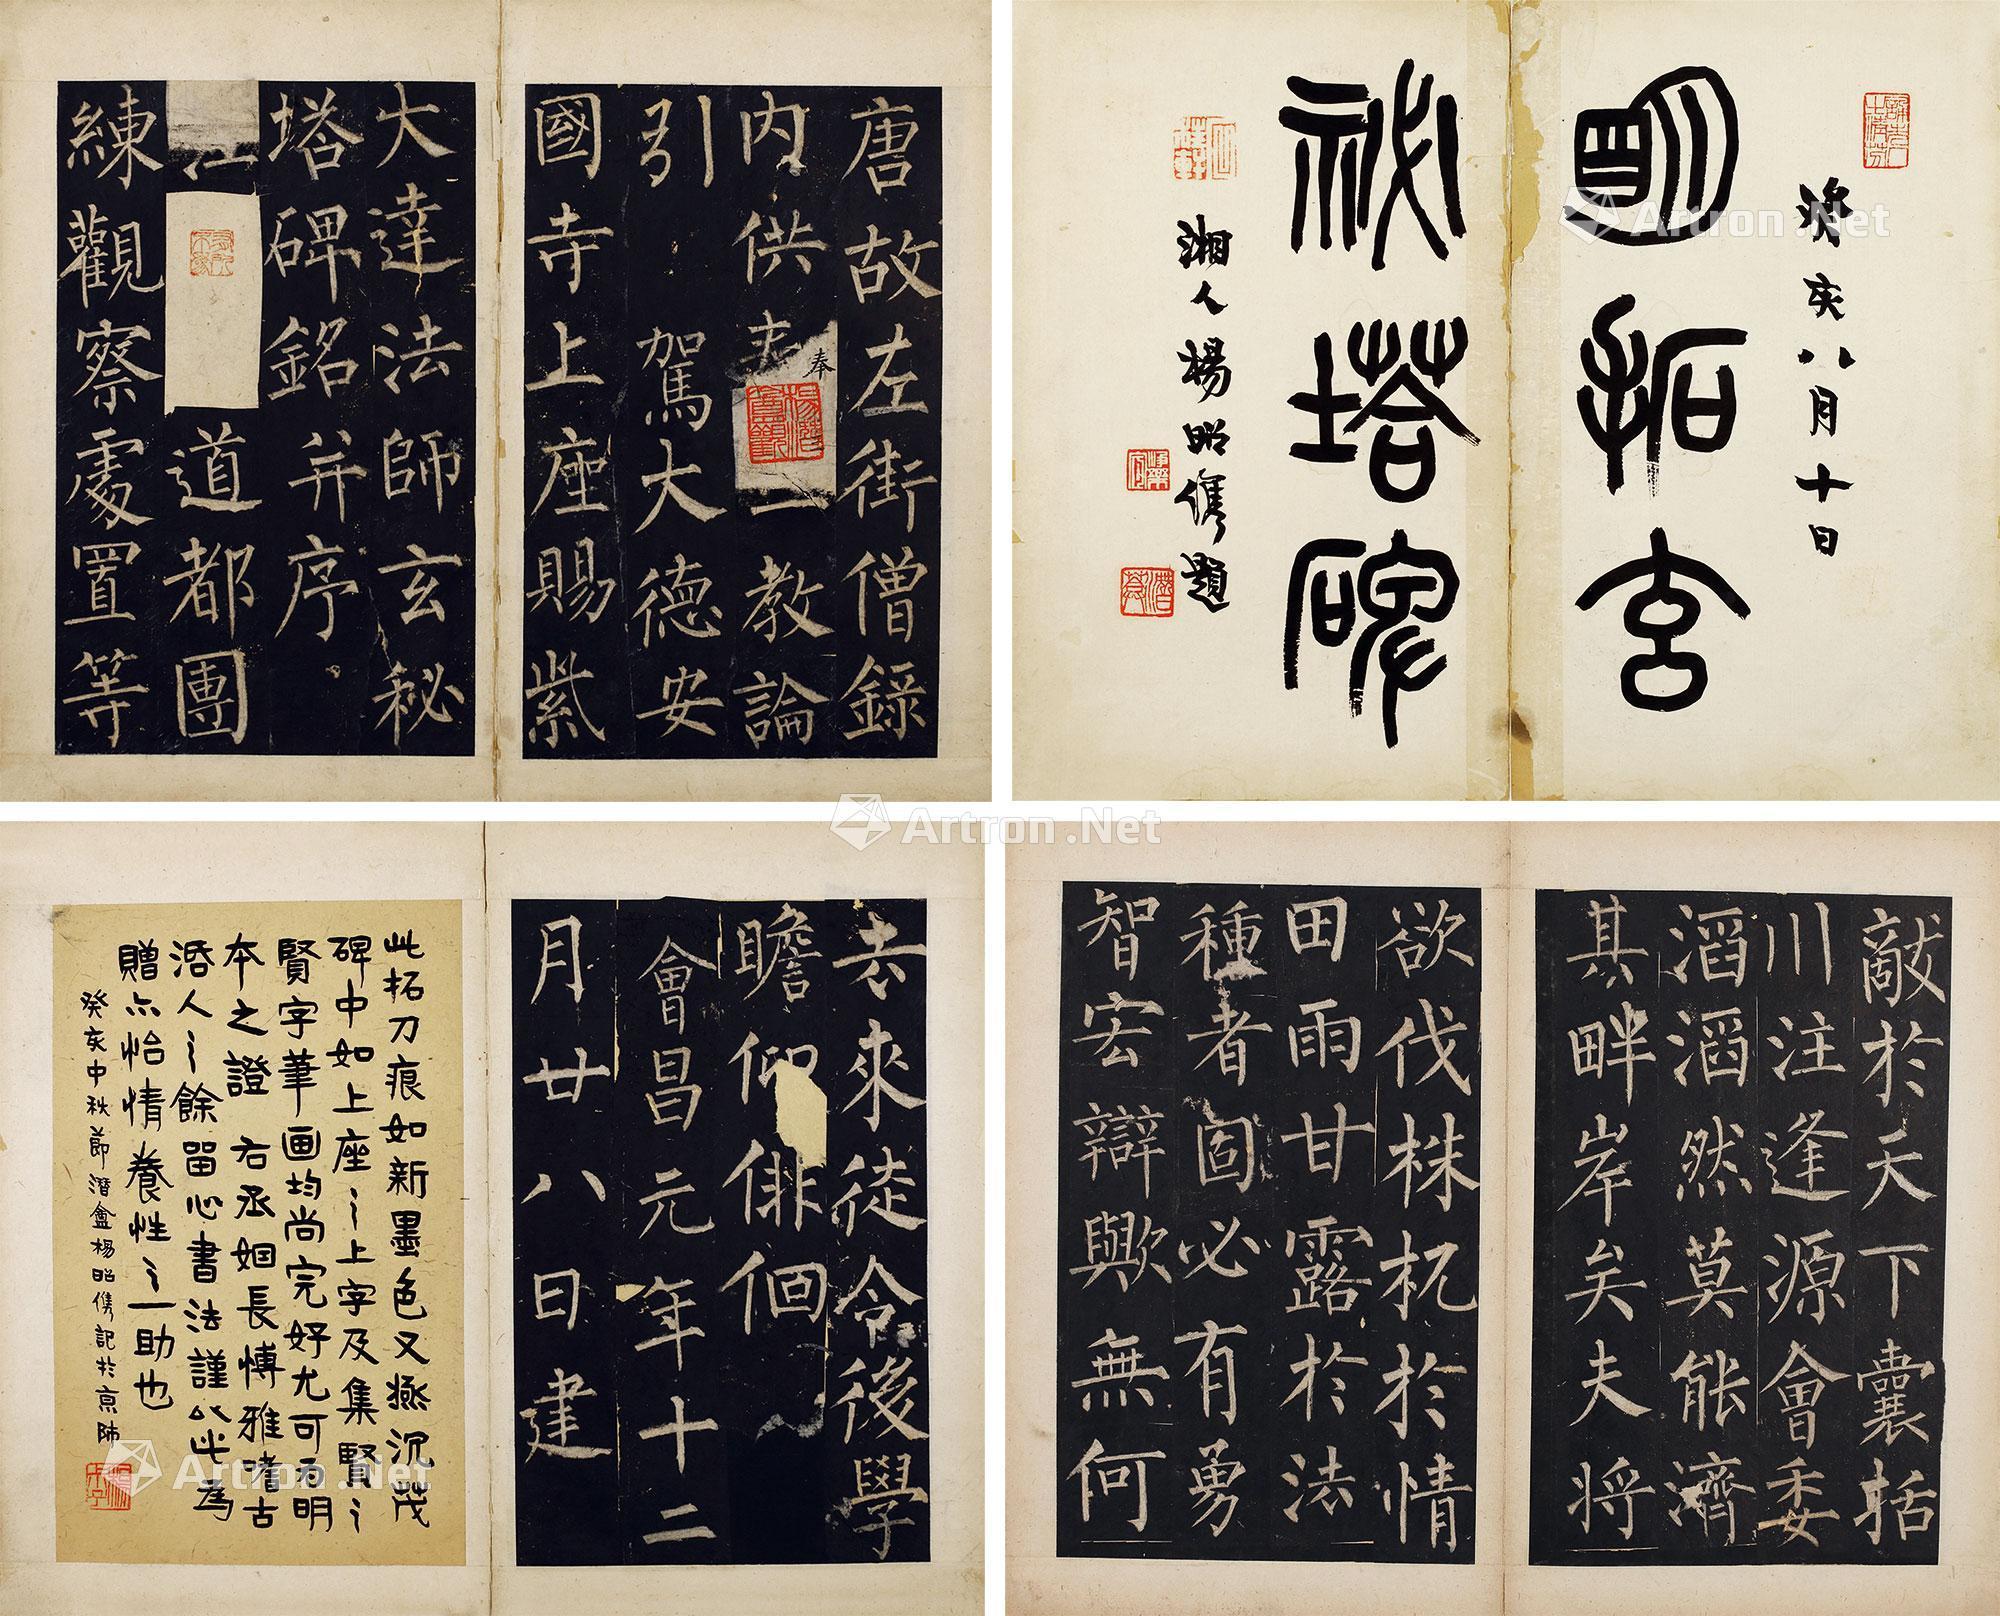 唐故左街僧錄
內供奉三教論
引駕大德安
國寺上座賜紫
大達法師玄秘
塔碑銘并序
江
道都團
練觀察處置等
奉
癸亥八月十日
明拓玄
秘塔碑
湘人楊昭儁題
去來徒令後學
瞻仰俳佪
會昌元年十二
月廿八日建
此拓刀痕如新墨色又極沉茂
碑中如上座之上字及集賢之
賢字筆画均尚完好尤可為明
本之證右丞姻長博雅嗜古
湉人之餘留心書法謹以此為
贈亦怡情養性之一助也
癸亥中秋節潛盦楊昭儁記於京師
敵於天下囊括
川注逢源會委
滔滔然莫能濟
其畔岸矣夫將
欲伐株杌於情
田雨甘露於法
種者固必有勇
智宏辯歟無何
Artron.Net
Artron.Net
Artron.Net
Artron.Net